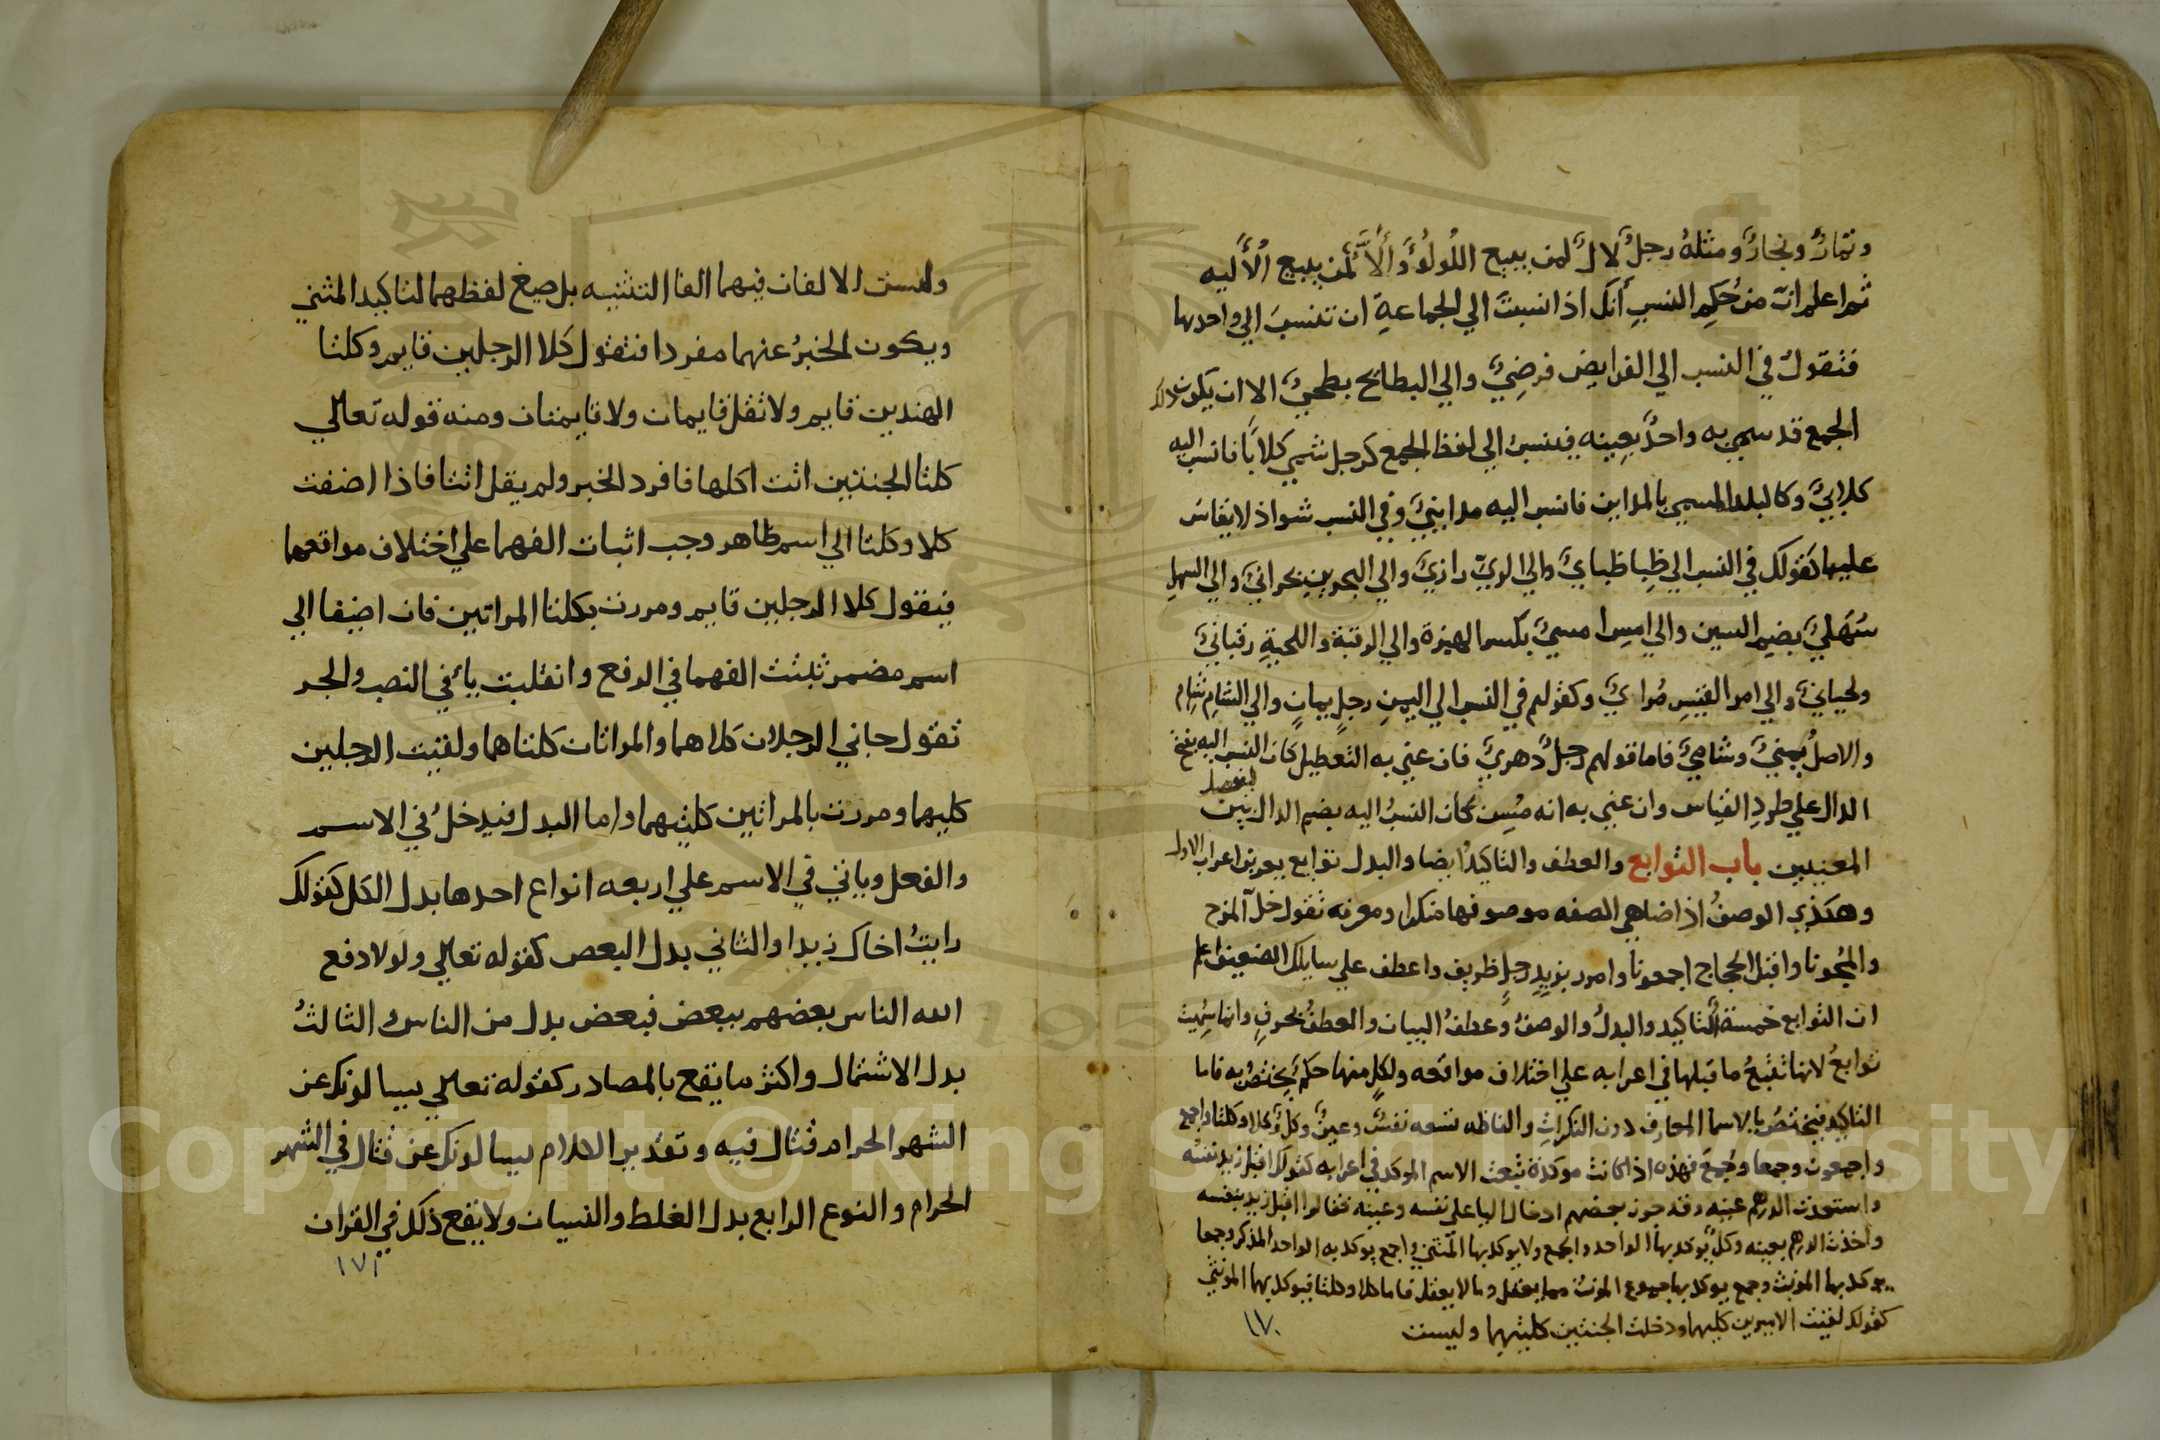 وتمارٌ ونجارٌ ومثلهُ رجلٌ لالٌ لمن يبيع اللُولُوَ وَألَّاٌ لمن يبيع الُأَليه
ثم اعلم ان من حُكمِ النسبِ أنكَ اذا نسبتَ الي الجماعةِ ان تنسبَ الي واحدها
فتقولُ في النسب الي الفرايض فرضِيٌ والي البطايح بطحيٌ الا ان يكون ذلك
الجمع قد سمي به واحدٌ بعينه فينسبُ الي لفظ الجمع كرجل سُمي كلابًا فانسب اليه
كلابيٌ وكالبلد المسمي بالمداين فانسب اليه مداينيٌ وفي النسب شواذ لا يقاس
عليها كقولك في النسب الي ظِبا ظباىٌ والي الريّ رازيٌ والي البحرينِ بحرانيٌ والي السهلِ
سُهَليٌ بضم السين والي امسِ امسيٌ بكسر الهمزة والي الرقبة واللحيةِ رقبانيٌ
ولحيانيٌ والي امرا القيسِ مُراىٌ وكقولهم في النسب الي اليمنِ رجلٍ يمانٍ والي الشامِ شام
والاصلُ يمنيٌ وشاميٌ فاما قولهم رجلٌ دهريٌ فان عني به التعطيل كان النسب اليه بفتح
الدال علي طردِ القياس وان عني به انه مُسِن كان النسبُ اليه بضم الدال ليفصل بين
المعنيين باب التوابع والعطف والتاكيدُ ايضا والبدل توابع يعربن اعراب الاول
وهكذي الوصفُ اذا ضاهي الصفه موصوفها منكرا ومعرفه تقول خلِّ المزح
والمُجونا واقبل الحجاج اجمعونا وامرر بزيدٍ رجلٍ ظريف واعطف علي سايلك الضعيف اعلم
ان التوابع خمسة التاكيد والبدلُ والوصفُ وعطفُ البيان والعطفُ بحرفٍ وانما سُميت
توابعُ لانها تتبعُ ما قبلها في اعرابه علي اختلاف مواقعه ولكلٍ منها حكمٌ يختصُ به فاما
التاكيد فيختصُ بالاسما المعارف دون النكراتِ والفاظه تسعه نفسٌ وعينٌ وكلٌ وكلا وكلتا واجمع
واجمعون وجمعا وجُمعَ فهذه اذا كانت موكدة تبعت الاسم الموكد في اعرابه كقولك اقبل زيدٌ نفسُه
واستعدت الدرهم عينه وقد جوز بعضهم ادخال البا علي نفسه وعينه فقالوا اقبل زيد بنفسه
واخذت الدرهم بعينه وكلٌ يوكد بها الواحد والجمع ولا يوكد بها المثني واجمع يوكد به الواحد المذكر وجمعا
يوكد بها المونث وجمع يوكد بها جموع المونث مما يعقل وما لا يعقل فاما كلا وكلتا فيوكد بهما المونثي
كقولك لقيت الاميرين كليهما ودخلت الجنتين كلتيهما وليست
١٧٠
وليست الالفان فيهما الفا التثنيه بل صيغ لفظهما لتاكيد المثني
ويكون الخبرُ عنهما مفردا فتقول كلا الرجلين قايم وكلتا
الهندين قايم ولا تقل قايمان ولا قايمتان ومنه قوله تعالي
كلتا الجنتين اتت اكلها فافرد الخبر ولم يقل اتتا فاذا اضفت
كلا وكلتا الي اسم ظاهر وجب اثبات الفهما علي اختلاف مواقعهما
فيقول كلا الرجلين قايم ومررت بكلتا المراتين فان اضيفا الي
اسم مضمر ثبتت الفهما في الرفع وانقلبت يائ في النصب والجر
تقول جاني الرجلان كلاهما والمراتان كلتاهما ولقيت الرجلين
كليهما ومررت بالمراتين كلتيهما واما البدل فيدخلُ في الاسم
والفعل وياتي في الاسم علي اربعه انواع احدها بدل الكل كقولك
رايتُ اخاك زيدا والثاني بدل البعض كقوله تعالي ولولا دفع
الله الناس بعضهم ببعض فبعض بدل من الناس الثالثُ
بدل الاشتمال واكثر ما يقع بالمصادر كقوله تعالي يسالونك عن
الشهر الحرام قتال فيه وتقدير الكلام يسالونك عن قتال في الشهر
الحرام والنوع الرابع بدل الغلط والنسيان ولا يقع ذلك في القران
١٧١
Copyright © King Saud University